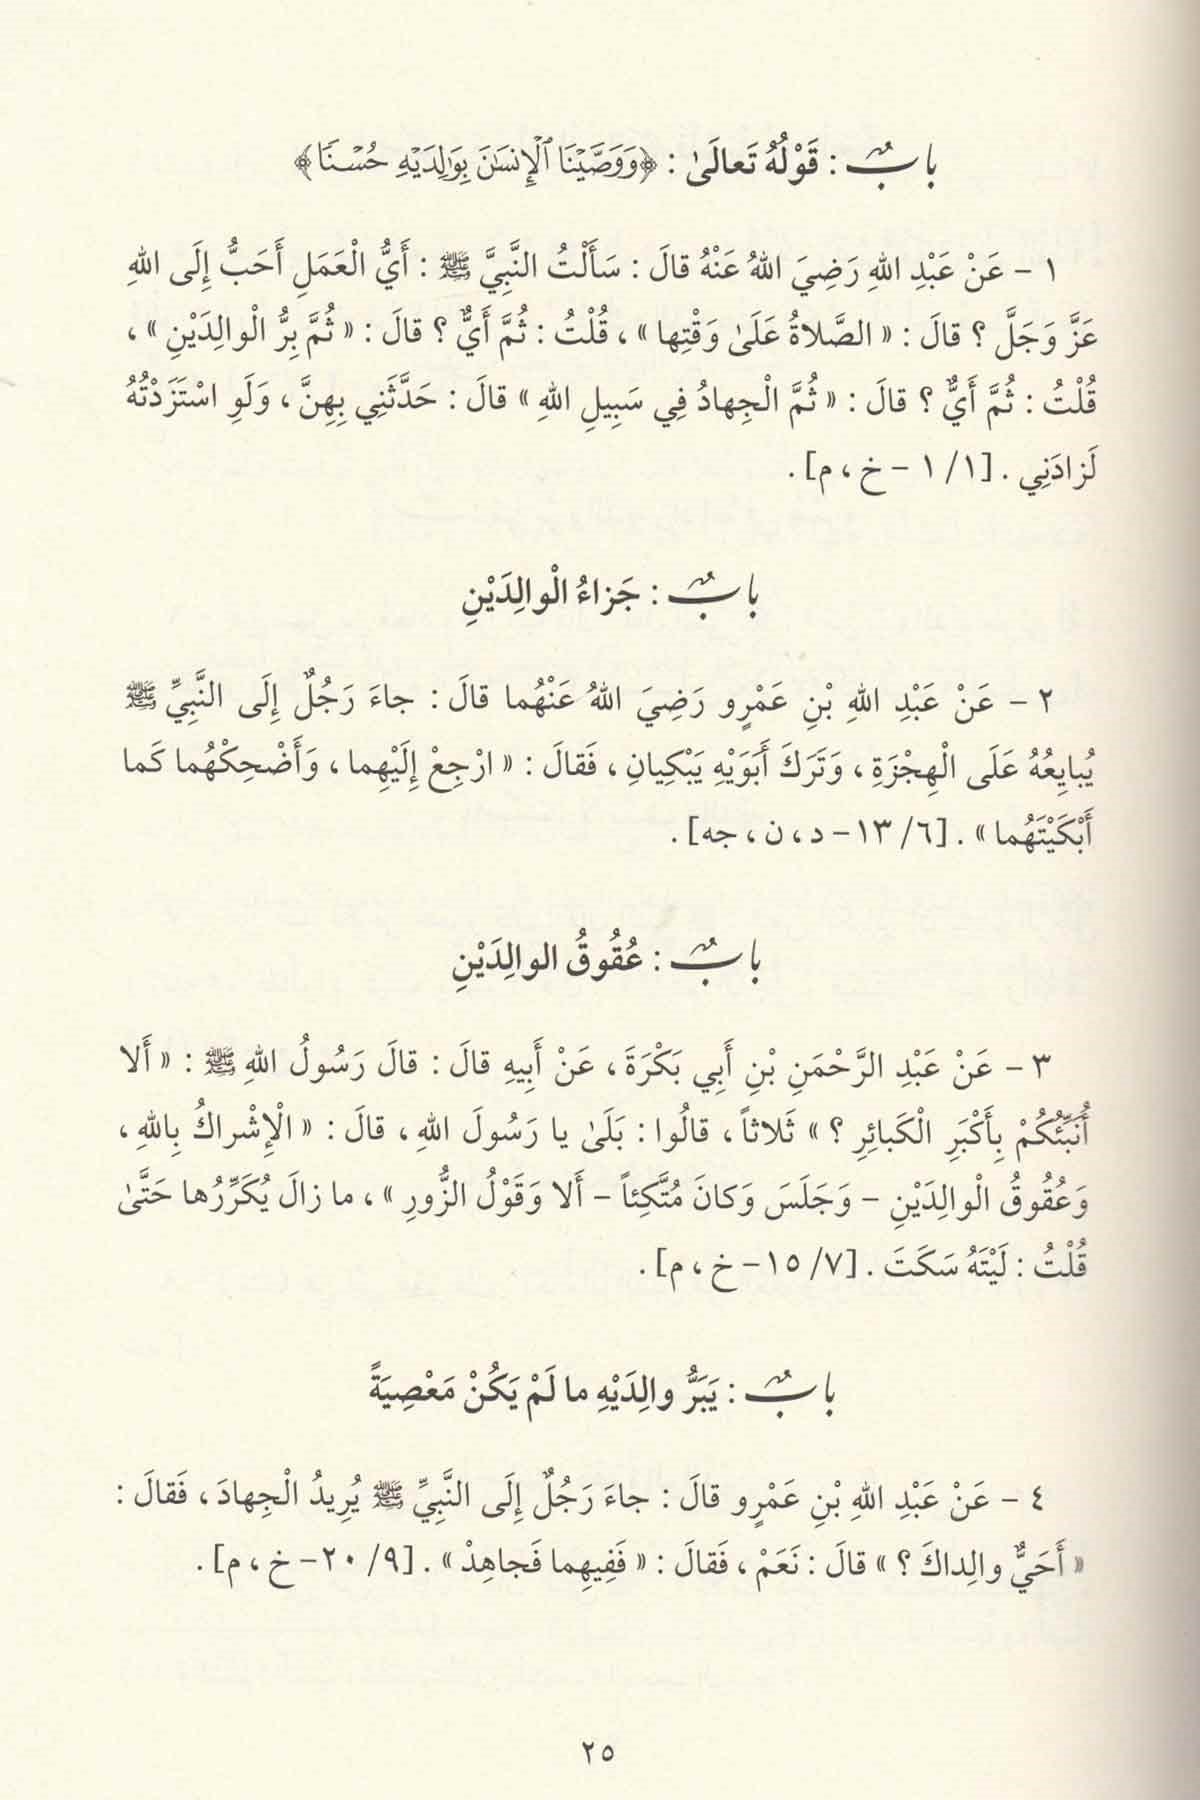 بابٌ : قَوْلُهُ تَعالَىٰ : ﴿وَوَصَّيْنَا ٱلْإِنسَٰنَ بِوَٰلِدَيْهِ حُسْنًا﴾
١ – عَنْ عَبْدِ اللهِ رَضِيَ اللهُ عَنْهُ قالَ : سَأَلْتُ النَّبِيَّ ﷺ : أَيُّ الْعَمَلِ أَحَبُّ إِلَى اللهِ
عَزَّ وَجَلَّ ؟ قالَ : « الصَّلاةُ عَلَىٰ وَقْتِها » ، قُلْتُ : ثُمَّ أَيٌّ ؟ قالَ : « ثُمَّ بِرُّ الْوالِدَيْنِ » ،
قُلْتُ : ثُمَّ أَيٌّ ؟ قالَ : « ثُمَّ الْجِهادُ فِي سَبِيلِ اللهِ » قالَ : حَدَّثَنِي بِهِنَّ ، وَلَوِ اسْتَزَدْتُهُ
لَزادَنِي . [١/ ١ – خ ، م] .
بابٌ : جَزاءُ الْوالِدَيْنِ
٢ – عَنْ عَبْدِ اللهِ بْنِ عَمْرٍو رَضِيَ اللهُ عَنْهُما قالَ : جاءَ رَجُلٌ إِلَى النَّبِيِّ ﷺ
يُبايِعُهُ عَلَى الْهِجْرَةِ ، وَتَرَكَ أَبَوَيْهِ يَبْكِيانِ ، فَقالَ : « ارْجِعْ إِلَيْهِما ، وَأَضْحِكْهُما كَما
أَبْكَيْتَهُما » . [٦/ ١٣– د ، ن ، جه] .
بابٌ : عُقُوقُ الوالِدَيْنِ
٣ – عَنْ عَبْدِ الرَّحْمَنِ بْنِ أَبِي بَكْرَةَ ، عَنْ أَبِيهِ قالَ : قالَ رَسُولُ اللهِ ﷺ : « أَلا
أُنَبِّئُكُمْ بِأَكْبَرِ الْكَبائِرِ ؟ » ثَلاثاً ، قالُوا : بَلَىٰ يا رَسُولَ اللهِ ، قالَ : « الْإِشْراكُ بِاللهِ ،
وَعُقُوقُ الْوالِدَيْنِ – وَجَلَسَ وَكانَ مُتَّكِئاً – أَلا وَقَوْلُ الزُّورِ » ، ما زالَ يُكَرِّرُها حَتَّىٰ
قُلْتُ : لَيْتَهُ سَكَتَ . [٧/ ١٥– خ ، م] .
بابٌ : يَبَرُّ والِدَيْهِ ما لَمْ يَكُنْ مَعْصِيَةً
٤ – عَنْ عَبْدِ اللهِ بْنِ عَمْرٍو قالَ : جاءَ رَجُلٌ إِلَى النَّبِيِّ ﷺ يُرِيدُ الْجِهادَ ، فَقالَ :
« أَحَيٌّ والِداكَ ؟ » قالَ : نَعَمْ ، فَقالَ : « فَفِيهِما فَجاهِدْ » . [٩/ ٢٠– خ ، م] .
٢٥